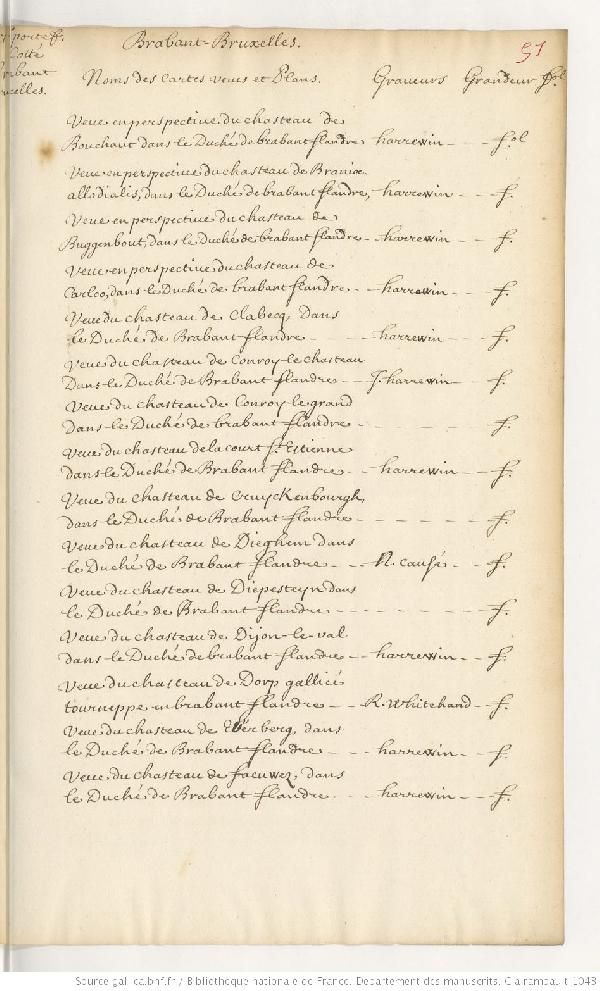 Brabant-Bruxelles.
51
porte ff.
Cotté
brabant
ucelles.
Noms des Cartes veues et Plans. Graveurs Grandeur ff.
Veue en perspective du chasteau de
Bouchaut dans le Duché de brabant flandre harrewin - - fol
Veue en perspective du chasteau de Braniæ
allodialis, dans le Duché de brabant flandre, - harrewin - - f.
Veue en perspective du chasteau de
Buggenbout, dans le Duché de brabant flandre - - harrewin - - f.
Veue en perspective du chasteau de
Carloo, dans le Duché de brabant flandre - - harrewin - - f.
Veue du chasteau de Clabecq, dans
le Duché de Brabant flandre - - harrewin - - f.
Veue du chasteau de Conroy-le chasteau
Dans le Duché de Brabant flandre - - J. harrewin - - f.
Veue du chasteau de Conroy le grand
Dans-le Duché de brabant flandre - - - - - f.
Veue du chasteau de la court St Estienne
dans le Duché de Brabant flandre - - harrewin - - f.
Veue du chasteau de Cruyckenbourgh,
dans le Duché de Brabant flandre - - - - - f.
Veue du chasteau de Dieghem dans
le Duché de Brabant flandre - - N. causé - - f.
Veue du chasteau de Diepesteyn dans
le Duché de Brabant flandre - - - - - f.
Veue du chasteau de Dijon-le-val
dans le Duché de brabant flandre - - harrewin - - f.
Veue du chasteau de Dorp gallicé
tourneppe en brabant flandre - - R. Whitehand - - f.
Veue du chasteau de Everberg, dans
le Duché de Brabant flandre - - harrewin - - f.
Veue du chasteau de facuwez, dans
le Duché de Brabant flandre - - harrewin - - f.
Source gallica.bnf.fr / Bibliothèque nationale de France. Département des manuscrits. Clairambault 1048